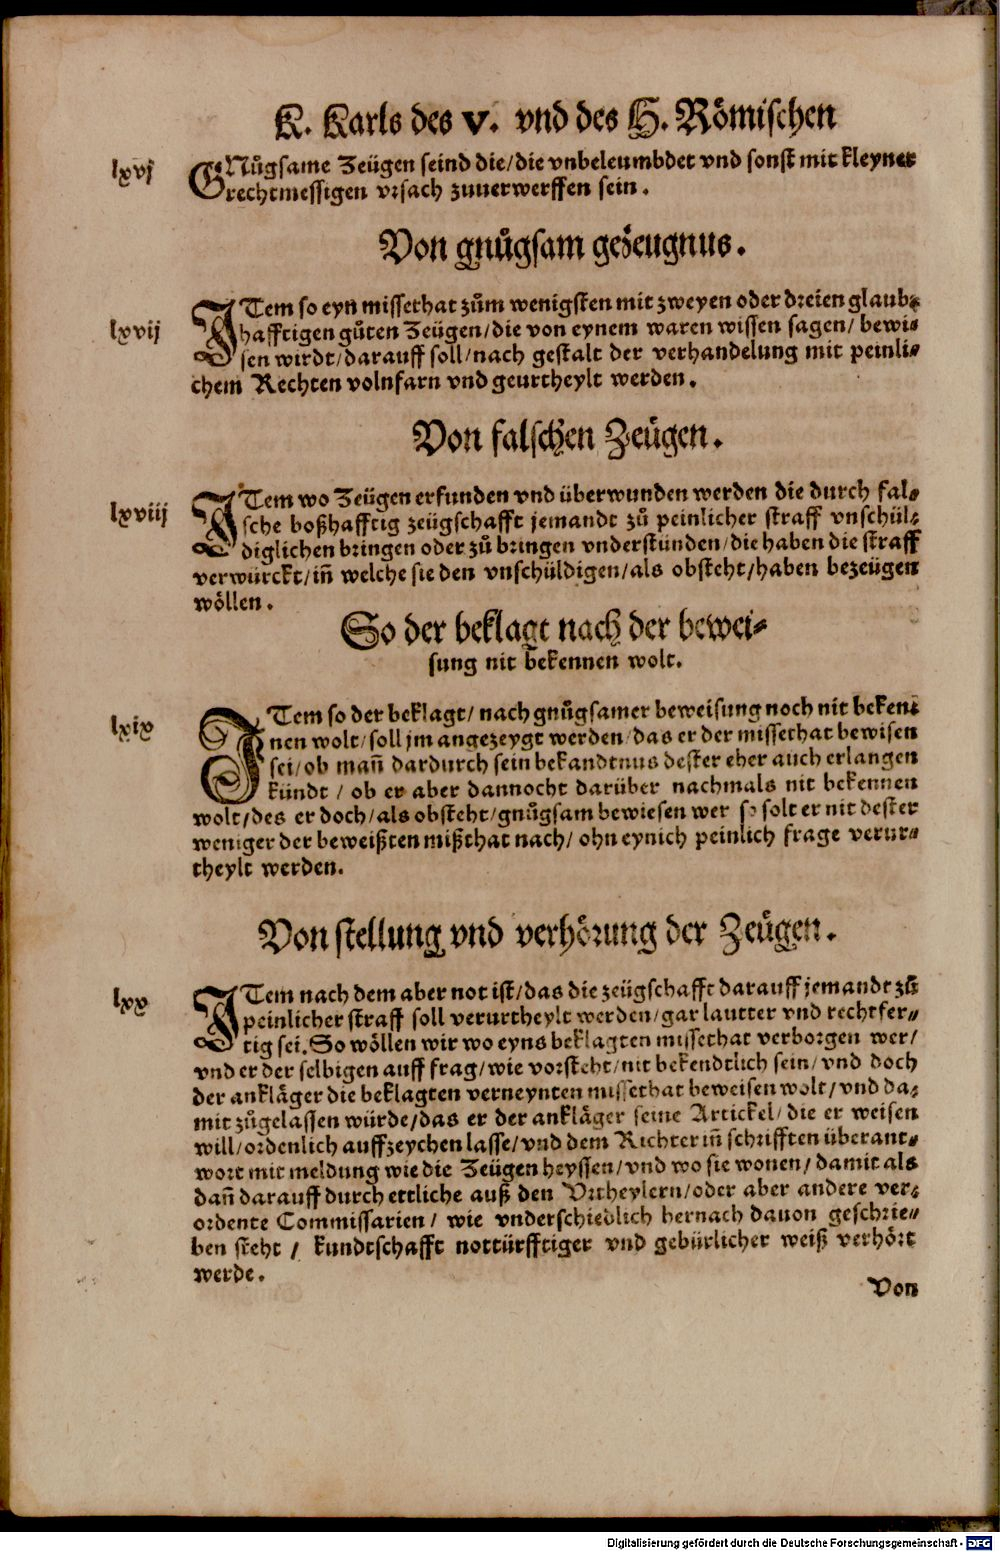 K. Karls des V. vnd des H. Römischen
lxvj
GNůgsame Zeügen seind die/die vnbeleumbdet vnd sonst mit kleyner
rechtmessigen vrsach zuuerwerffen sein.
Von gnůgsam gezeugnus.
lxvij
ITem so eyn missethat zům wenigsten mit zweyen oder dreien glaub⸗
hafftigen gůten Zeügen/die von eynem waren wissen sagen/ bewi⸗
sen wirdt/darauff soll/nach gestalt der verhandelung mit peinli⸗
chem Rechten volnfarn vnd geurtheylt werden.
Von falschen Zeügen.
lxviij
ITem wo Zeügen erfunden vnd überwunden werden die durch fal⸗
sche boßhafftig zeügschafft jemandt zů peinlicher straff vnschül⸗
diglichen bringen oder zů bringen vnderstünden/die haben die straff
verwürckt/iñ welche sie den vnschüldigen/als obsteht/haben bezeügen
wöllen.
So der beklagt nach der bewei⸗
sung nit bekennen wolt.
lxix
ITem so der beklagt/ nach gnůgsamer beweisung noch nit beken⸗
nen wolt/soll jm angezeygt werden/das er der missethat bewisen
sei/ob mañ dardurch sein bekandtnus dester eher auch erlangen
kündt / ob er aber dannocht darüber nachmals nit bekennen
wolt/des er doch/als obsteht/gnůgsam bewiesen wer so solt er nit dester
weniger der beweißten mißthat nach/ ohn eynich peinlich frage verur⸗
theylt werden.
Von stellung vnd verhörung der Zeügen.
lxx
ITem nach dem aber not ist/das die zeügschafft darauff jemandt zů
peinlicher straff soll verurtheylt werden/gar lautter vnd rechtfer⸗
tig sei. So wöllen wir wo eyns beklagten missethat verborgen wer/
vnd er der selbigen auff frag/wie vorsteht/nit bekendtlich sein/vnd doch
der ankläger die beklagten verneynten missethat beweisen wolt/vnd da⸗
mit zůgelassen würde/das er der ankläger seine Artickel/die er weisen
will/ordenlich auffzeychen lasse/vnd dem Richter iñ schrifften überant⸗
wort mit meldung wie die Zeügen heyssen/vnd wo sie wonen/damit als
dañ darauff durch ettliche auß den Vrtheylern/oder aber andere ver⸗
ordente Commissarien/ wie vnderschiedlich hernach dauon geschrie⸗
ben steht / kundtschafft nottürfftiger vnd gebürlicher weiß verhört
werde.
Von
Digitalisierung gefördert durch die Deutsche Forschungsgemeinschaft - DFG